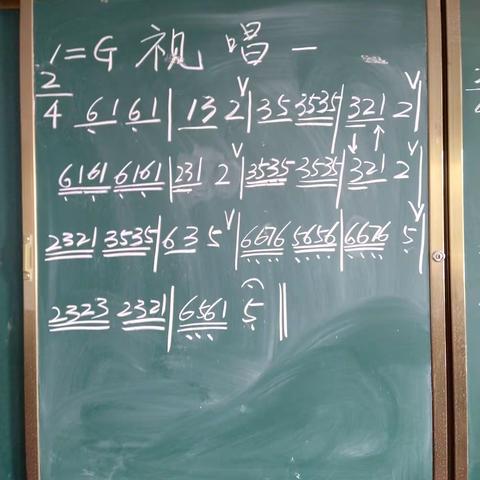 1=G 视唱一
2/4 61 61 | 13 2 V | 35 3535 | 321 2 V |
6161 6161 | 231 2 V | 3535 3535 | 321 2 V |
2321 3535 | 63 5 V | 6676 5656 | 6676 5 V |
2323 2321 | 6561 5 ||